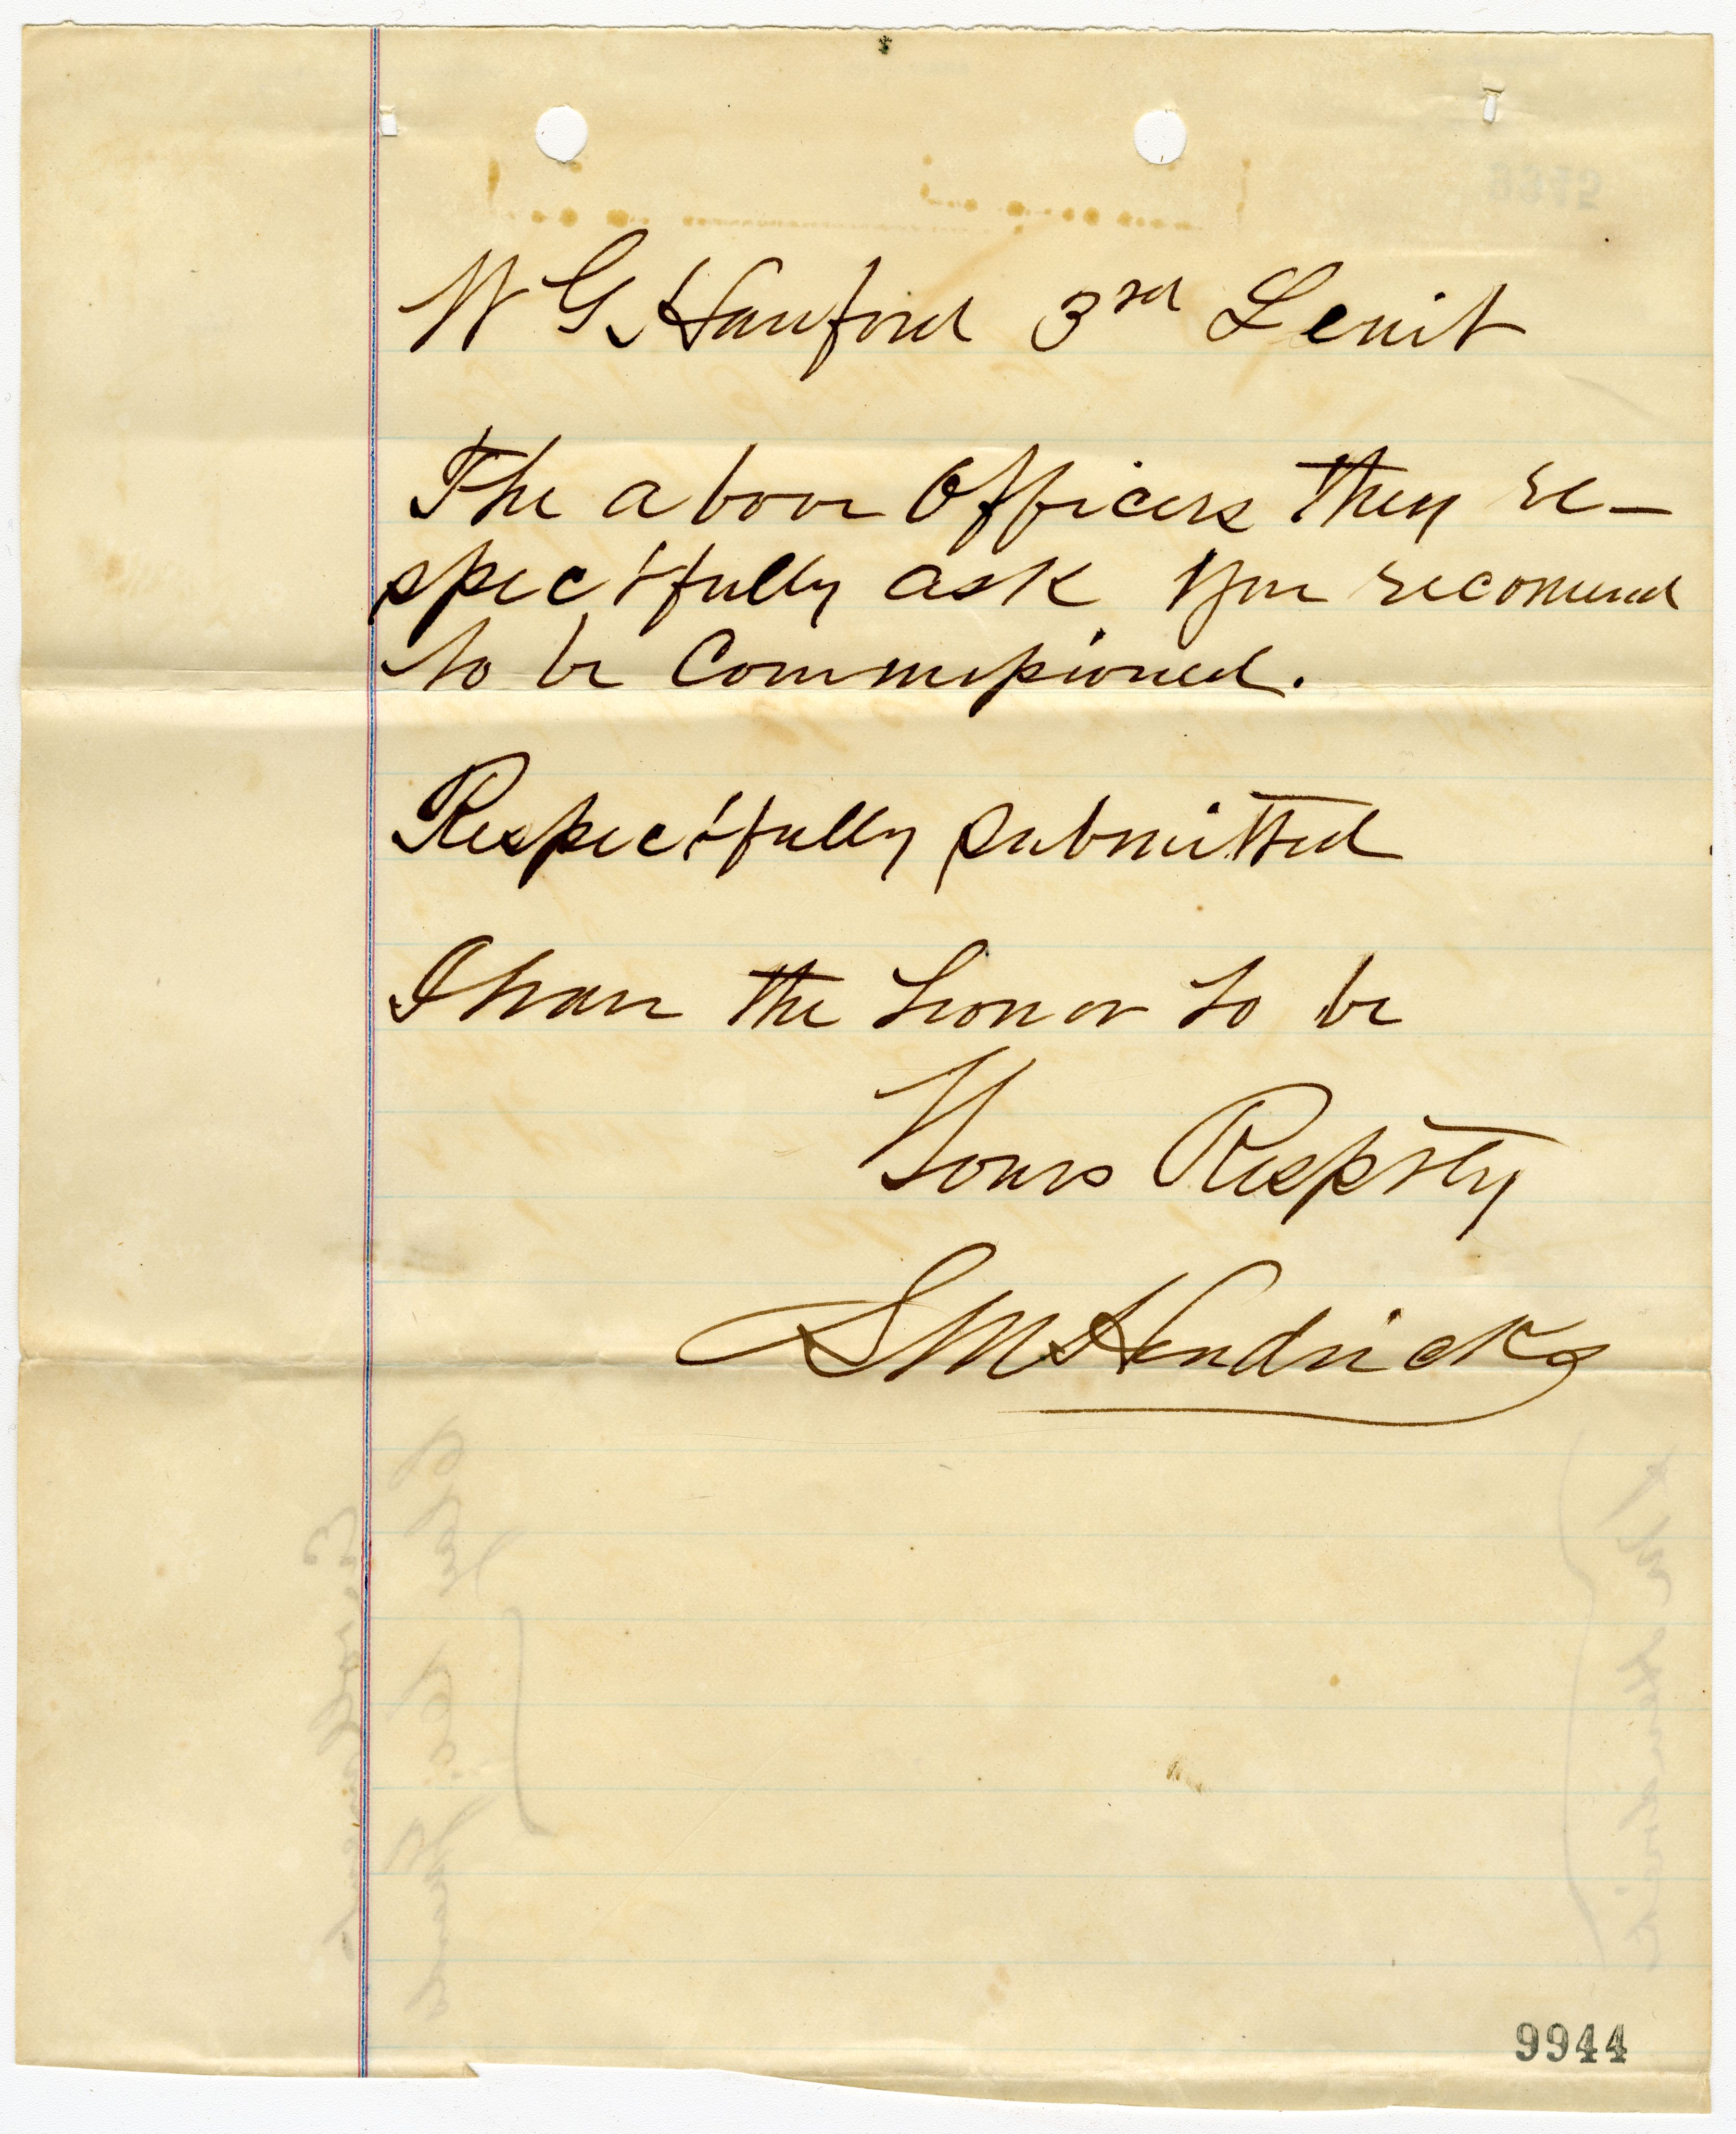 W G Hanford 3rd Lenit
The above Officers they re-
spectfully ask you recomend
to be Commissioned.
Respectfully submitted
I have the honor to be
Yours Respstly
S M Hendricks
9944